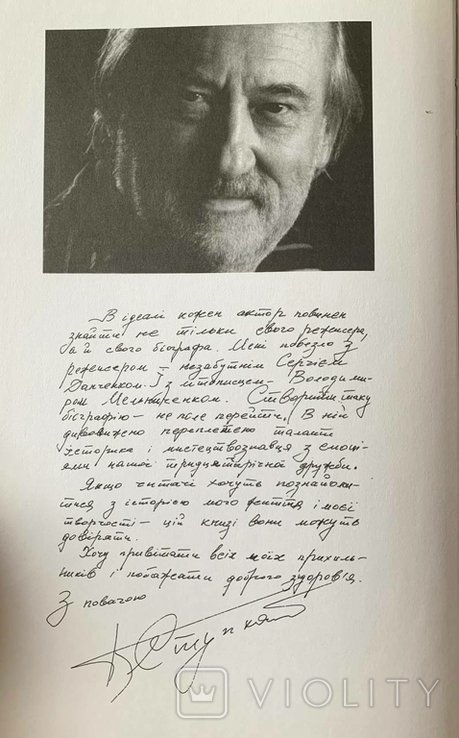 В ідеалі кожен актор повинен
знайти не тільки свого режисера,
а й свого біографа. Мені повезло з
режисером – незабутнім Сергієм
Данченком. І з літописцем – Володими-
ром Мельниченком. Створити таку
біографію – не поле перейти. В ній
дивовижно переплетено таланти
історика і мистецтвознавця з емоці-
ями нашої тридцятирічної дружби.
Якщо читачі хочуть познайоми-
тися з історією мого життя і моєї
творчості – цій книзі вони можуть
довіряти.
Хочу привітати всіх моїх прихиль-
ників і побажати доброго здоров'я.
З повагою
Б Ступка
VIOLITY